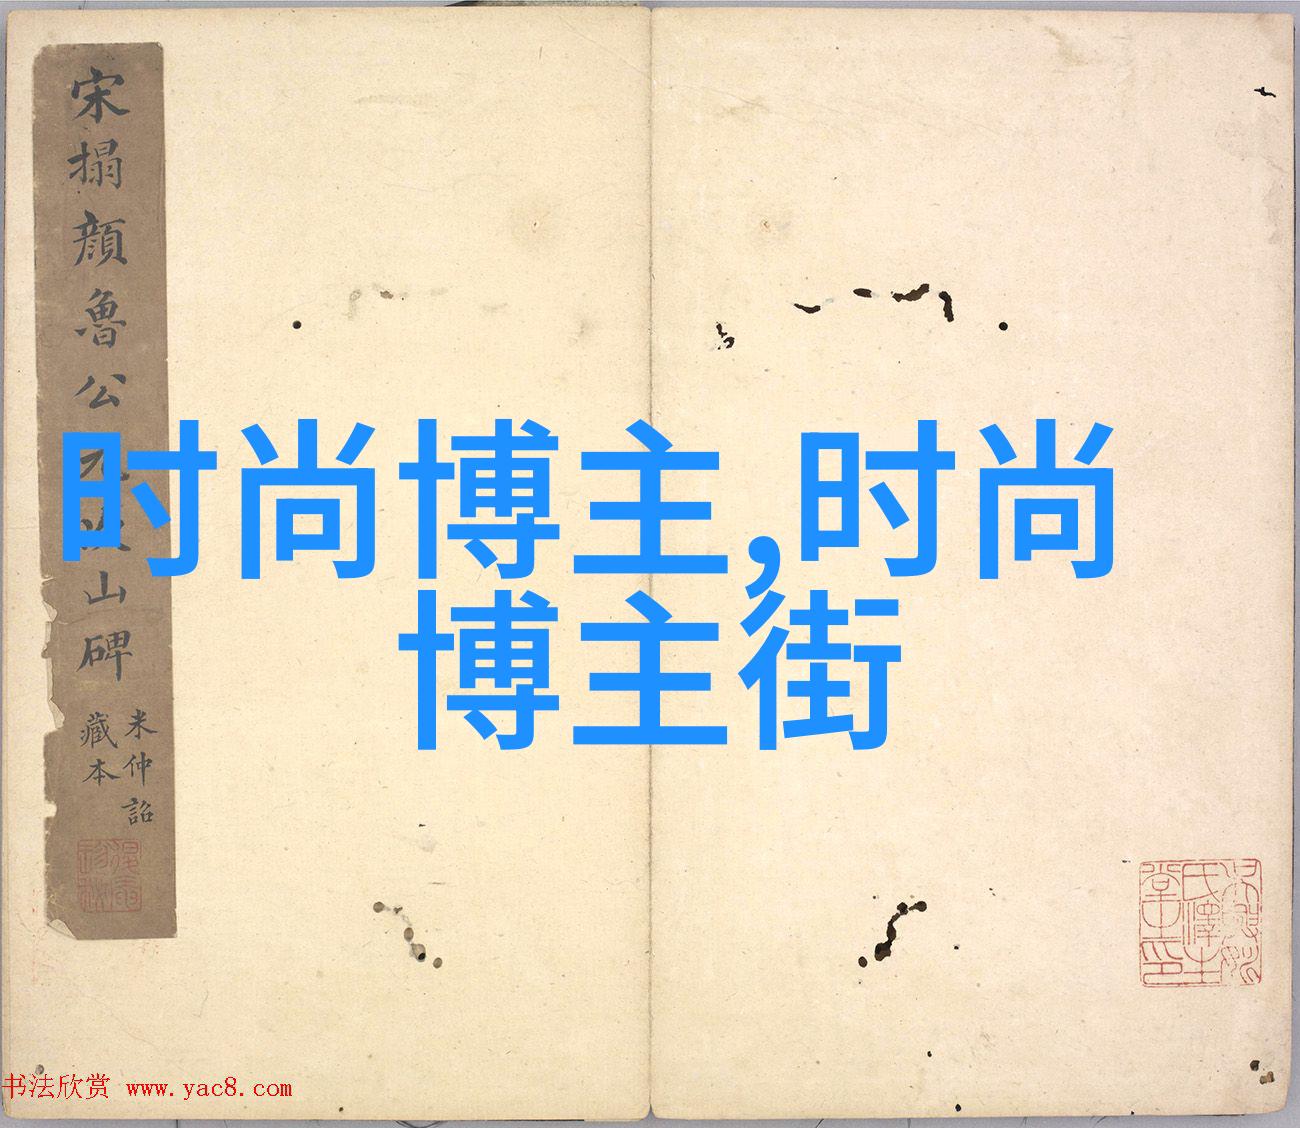 宋搨顔魯公元次山碑
米仲詔
藏本
时尚博主,时尚
博主街
书法欣赏 www.yac8.com